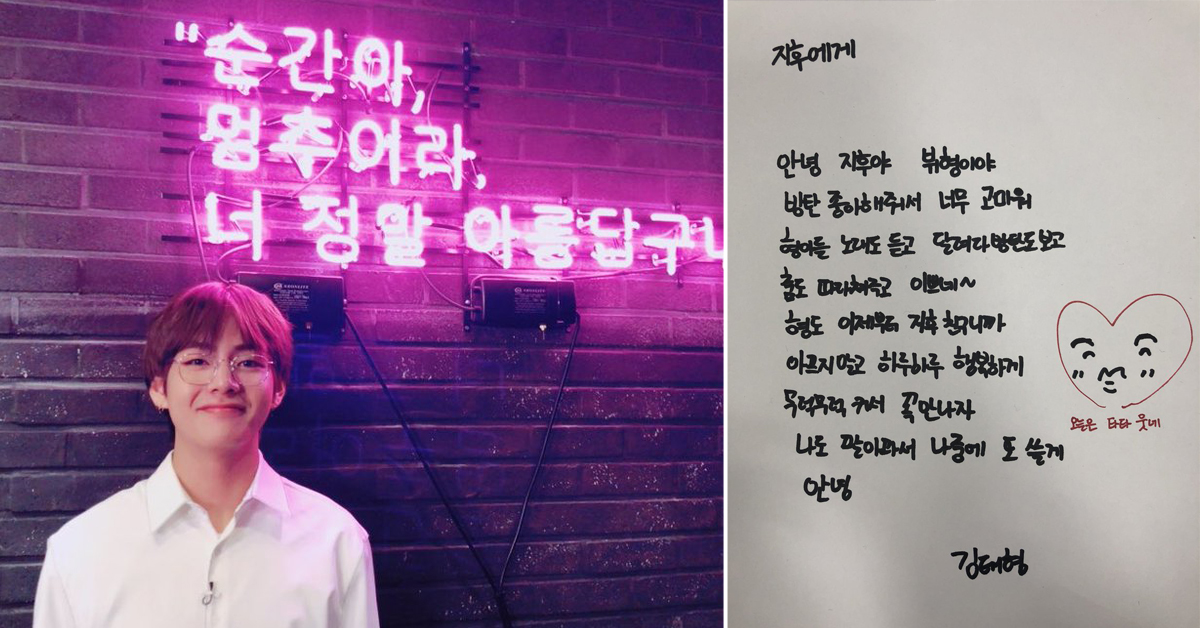 "순간아,
멈추어라,
너 정말 아름답구나
지후에게
안녕 지후야 뷔형이야
방탄 좋아해줘서 너무 고마워
형아들 노래도 듣고 달려라방탄도보고
춤도 따라해주고 이쁘네~
형도 이제부터 지후 친구니까
아프지말고 하루하루 행복하게
무럭무럭 커서 꼭만나자
나도 팔아파서 나중에 또 쓸게
안녕
김태형
오늘은 타타 웃네